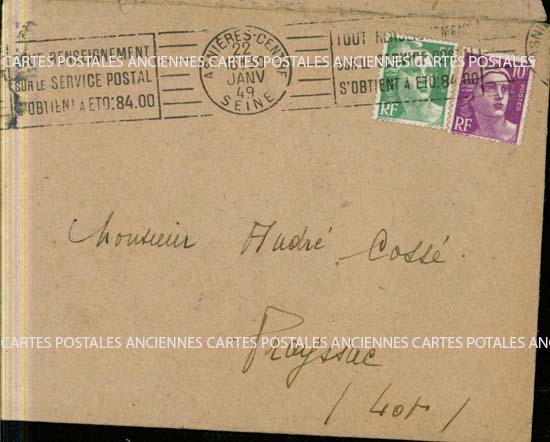 TOUT RENSEIGNEMENT
SUR LE SERVICE POSTAL
S'OBTIENT A ETO:84.00
ASNIÈRES-CENTRE
22
JANV
49
SEINE
TOUT RENSEIGNEMENT
SUR LE SERVICE POSTAL
S'OBTIENT A ETO:84.00
RF
10F
POSTES
RF
CARTES POSTALES ANCIENNES CARTES POSTALES ANCIENNES CARTES POTALES ANCIENNES
Monsieur André Cossé.
CARTES POSTALES ANCIENNES CARTES POSTALES ANCIENNES CARTES POTALES ANCIENNES
Prayssac
/ Lot /